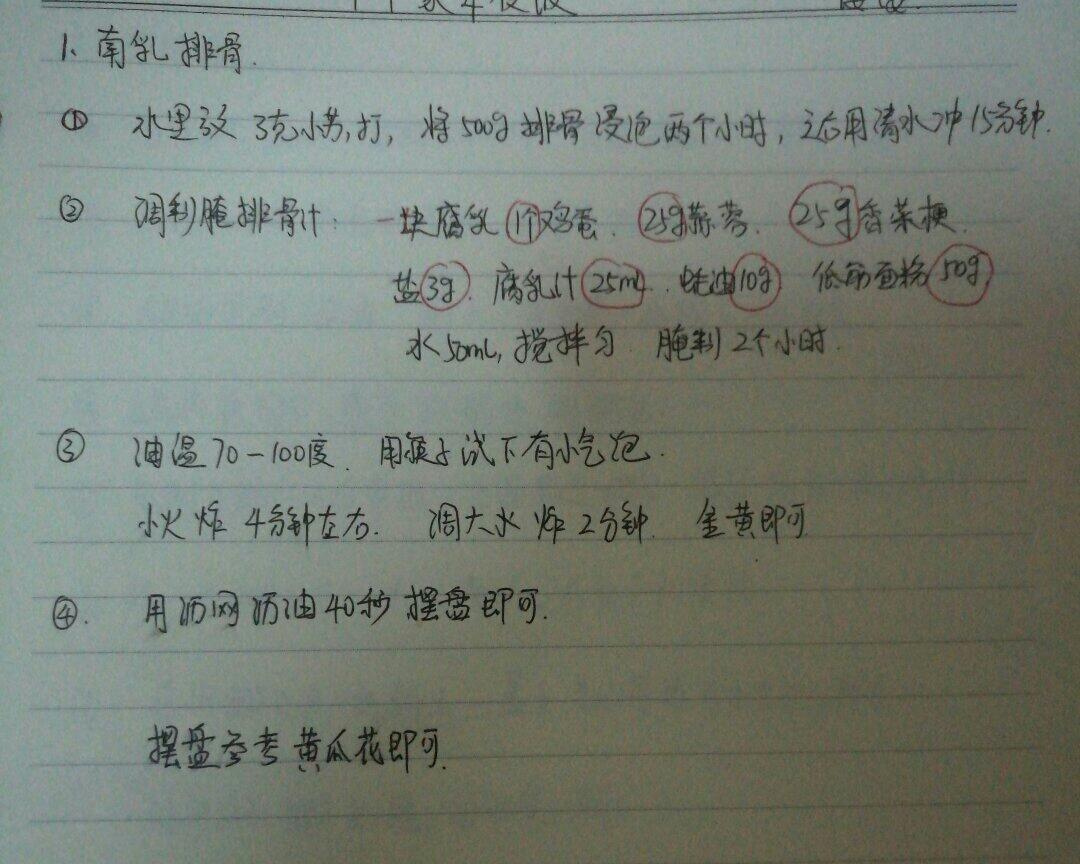 1、南乳排骨.
① 水里放 3克小苏打, 将500g排骨浸泡两个小时, 之后用清水冲15分钟.
② 调制腌排骨汁. 一块腐乳 1个鸡蛋、25g蒜蓉、25g香菜梗.
盐3g、腐乳汁25ml、蚝油10g 低筋面粉50g
水50ml, 搅拌匀. 腌制2个小时.
③ 油温70-100度、用筷子试下有小气泡.
小火炸4分钟左右. 调大火炸2分钟. 金黄即可
④. 用沥网沥油40秒 摆盘即可.
摆盘参考黄瓜花即可.